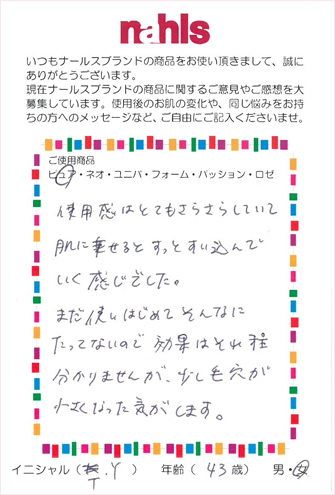 nahls
いつもナールスブランドの商品をお使い頂きまして、誠に
ありがとうございます。
現在ナールスブランドの商品に関するご意見やご感想を大
募集しています。使用後のお肌の変化や、同じ悩みをお持
ちの方へのメッセージなど、ご自由にご記入くださいませ。
ご使用商品
ピュア・ネオ・ユニバ・フォーム・パッション・ロゼ
使用感はとてもさらさらしていて
肌に乗せるとすっとすい込んで
いく感じでした。
まだ使いはじめてそんなに
たってないので効果はそれ程
分かりませんが、少し毛穴が
小さくなった気がします。
イニシャル（T.Y） 年齢（43歳） 男・女